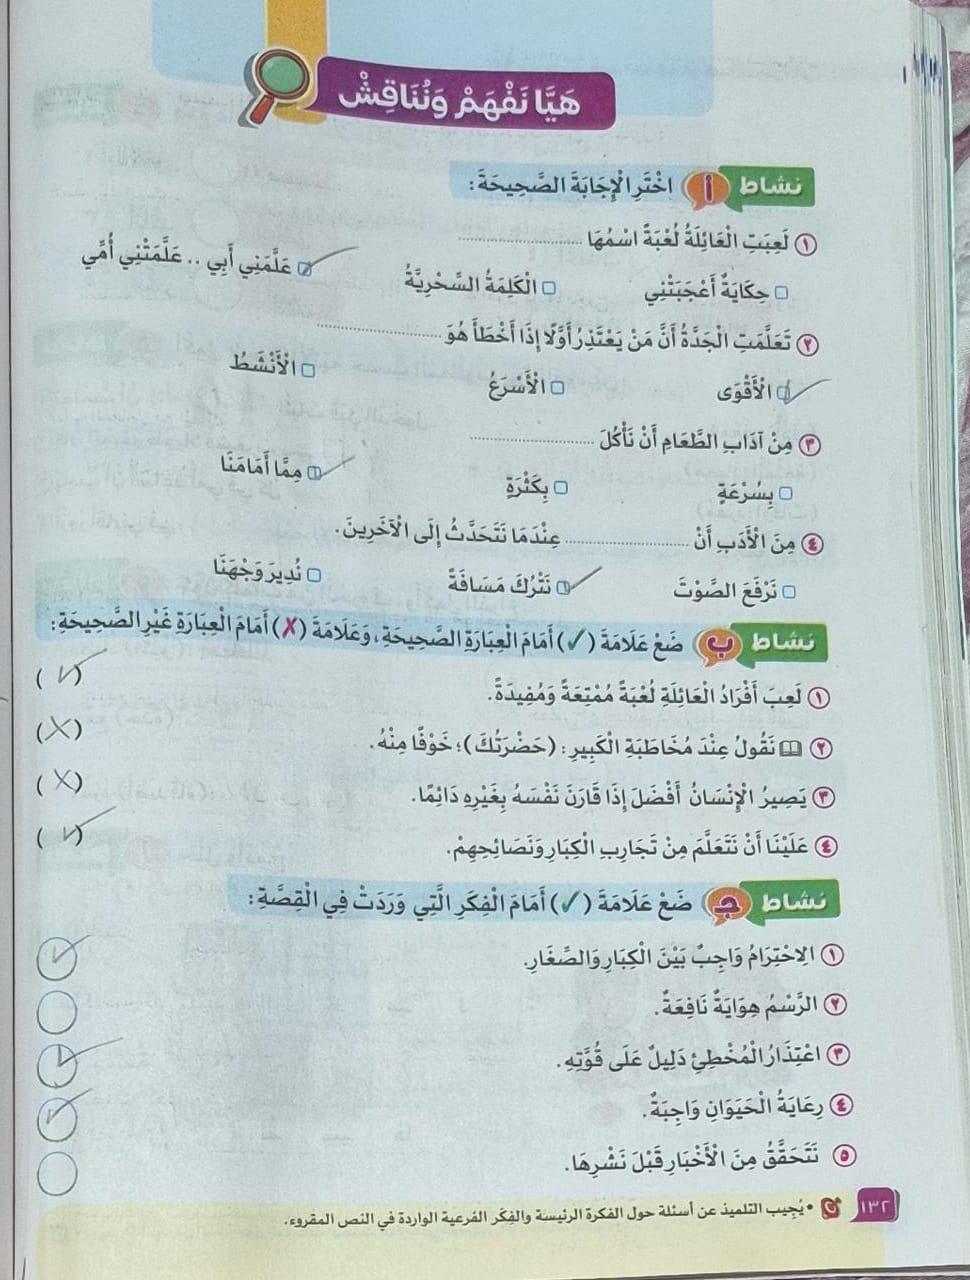 هَيَّا نَفْهَمْ وَنُنَاقِشْ
نشاط أ اخْتَرِ الْإِجَابَةَ الصَّحِيحَةَ:
١ لَعِبَتِ الْعَائِلَةُ لُعْبَةً اسْمُهَا ....................
حِكَايَةٌ أَعْجَبَتْنِي □ الْكَلِمَةُ السِّحْرِيَّةُ □ عَلَّمَنِي أَبِي .. عَلَّمَتْنِي أُمِّي ✓
٢ تَعَلَّمَتِ الْجَدَّةُ أَنَّ مَنْ يَعْتَذِرُ أَوَّلًا إِذَا أَخْطَأَ هُوَ ....................
الْأَقْوَى ✓ □ الْأَسْرَعُ □ الْأَنْشَطُ
٣ مِنْ آدَابِ الطَّعَامِ أَنْ نَأْكُلَ ....................
□ بِسُرْعَةٍ □ بِكَثْرَةٍ مِمَّا أَمَامَنَا ✓
٤ مِنَ الْأَدَبِ أَنْ .................... عِنْدَمَا نَتَحَدَّثُ إِلَى الْآخَرِينَ.
□ نَرْفَعَ الصَّوْتَ نَتْرُكَ مَسَافَةً ✓ □ نُدِيرَ وَجْهَنَا
نشاط ب ضَعْ عَلَامَةَ (✓) أَمَامَ الْعِبَارَةِ الصَّحِيحَةِ، وَعَلَامَةَ (✗) أَمَامَ الْعِبَارَةِ غَيْرِ الصَّحِيحَةِ:
١ لَعِبَ أَفْرَادُ الْعَائِلَةِ لُعْبَةً مُمْتِعَةً وَمُفِيدَةً. (✓)
٢ نَقُولُ عِنْدَ مُخَاطَبَةِ الْكَبِيرِ: (حَضْرَتُكَ)؛ خَوْفًا مِنْهُ. (✗)
٣ يَصِيرُ الْإِنْسَانُ أَفْضَلَ إِذَا قَارَنَ نَفْسَهُ بِغَيْرِهِ دَائِمًا. (✗)
٤ عَلَيْنَا أَنْ نَتَعَلَّمَ مِنْ تَجَارِبِ الْكِبَارِ وَنَصَائِحِهِمْ. (✓)
نشاط جـ ضَعْ عَلَامَةَ (✓) أَمَامَ الْفِكَرِ الَّتِي وَرَدَتْ فِي الْقِصَّةِ:
١ الِاحْتِرَامُ وَاجِبٌ بَيْنَ الْكِبَارِ وَالصِّغَارِ. ✓
٢ الرَّسْمُ هِوَايَةٌ نَافِعَةٌ.
٣ اعْتِذَارُ الْمُخْطِئِ دَلِيلٌ عَلَى قُوَّتِهِ. ✓
٤ رِعَايَةُ الْحَيَوَانِ وَاجِبَةٌ. ✓
٥ نَتَحَقَّقُ مِنَ الْأَخْبَارِ قَبْلَ نَشْرِهَا.
١٣٢ • يُجِيب التلميذ عن أسئلة حول الفكرة الرئيسة والفِكَر الفرعية الواردة في النص المقروء.